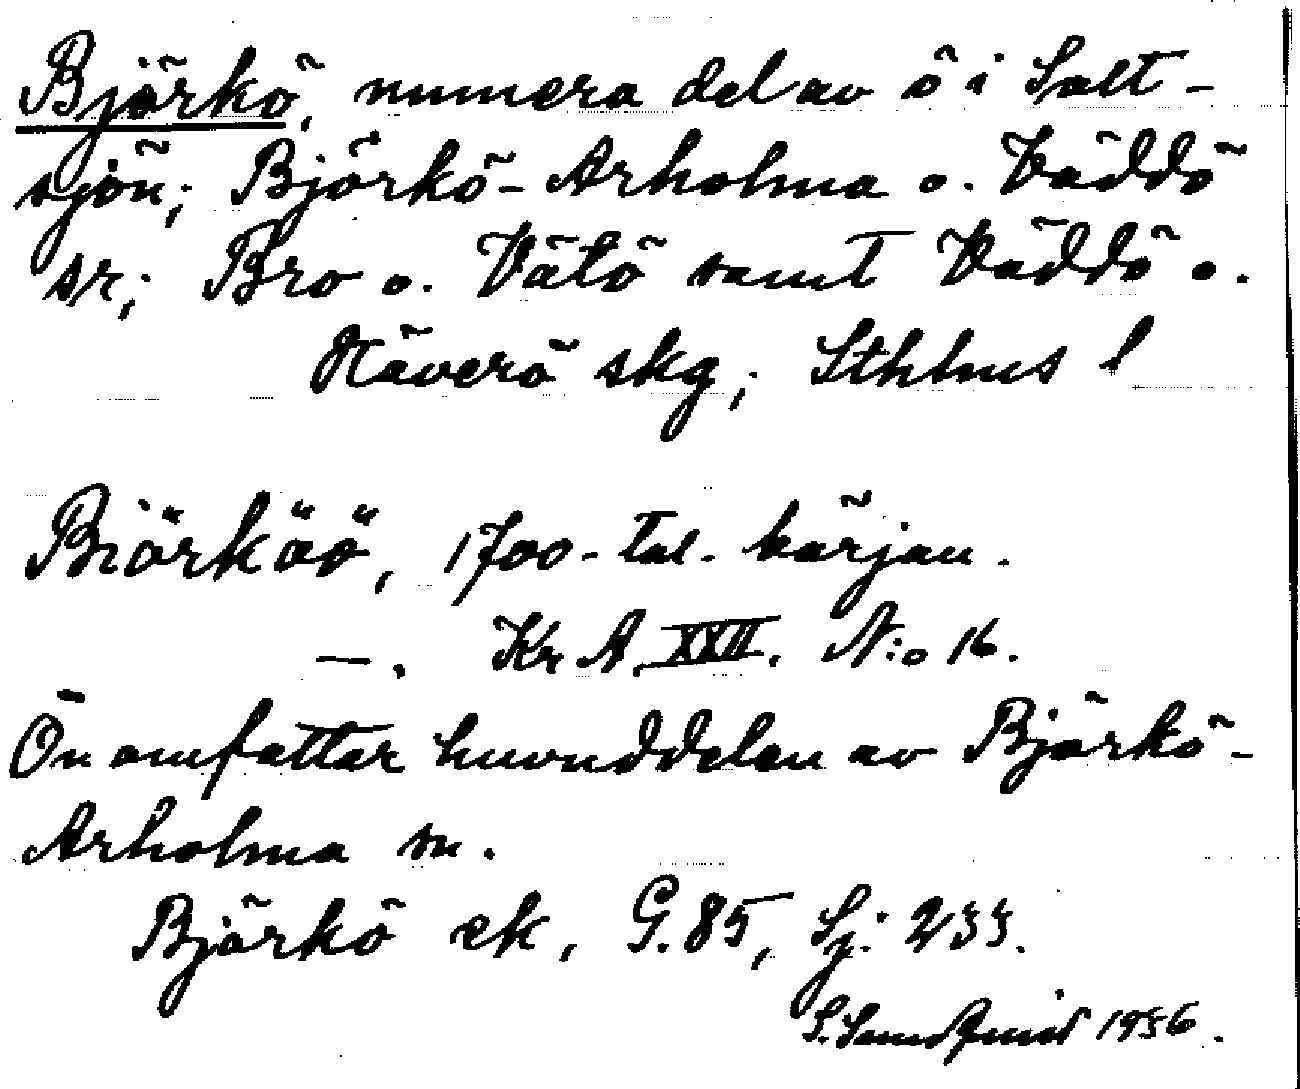 Björkö, numera del av ö i Salt-
sjön; Björkö-Arholma o. Väddö
sr; Bro o. Vätö samt Väddö o.
Häverö skg; Sthlms l
Biörköö, 1700-tal. början.
—. KrA. XXII. N:o 16.
Ön omfattar huvuddelen av Björkö-
Arholma sn.
Björkö ek, G. 85, Sj: 233.
1956.